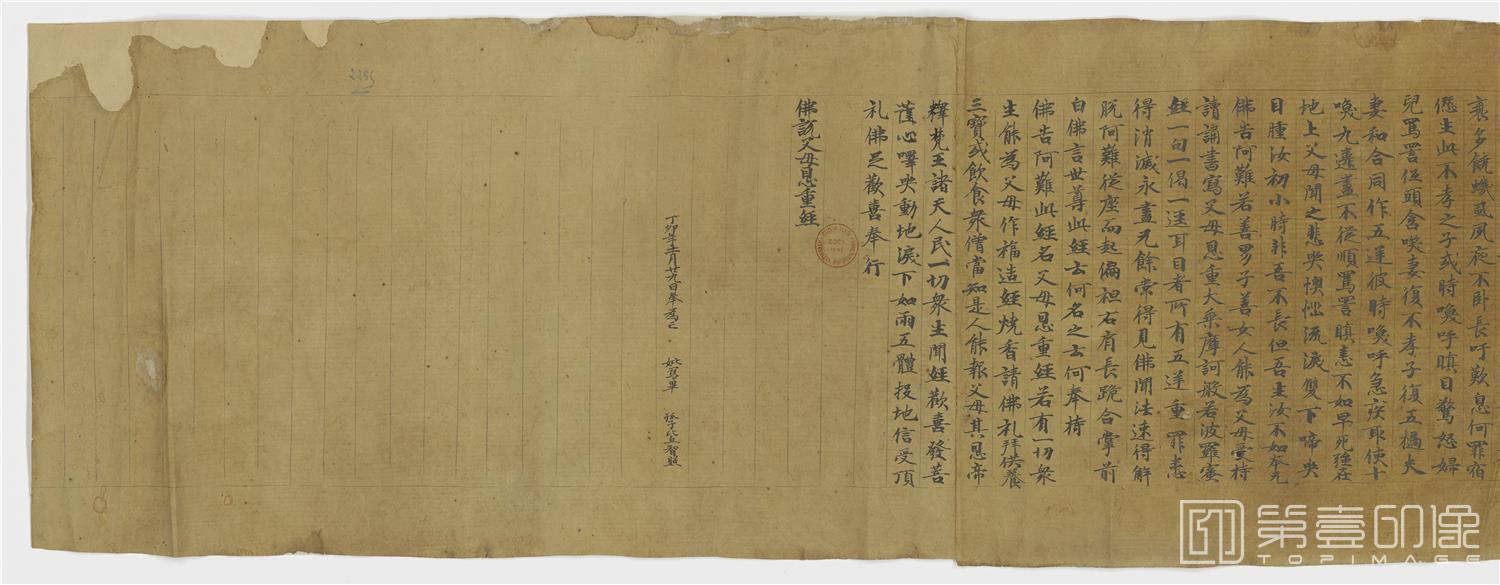 衰多饒蟣虱夙夜不卧長吁歎息何罪宿
愆生此不孝之子或時喚呼瞋目驚怒婦
兒罵詈伍頭含唉妻復不孝子復五擿夫
妻和合同作五逆彼時喚呼急疾取使十
喚九違盡不從順罵詈瞋恚不如早死強在
地上父母聞之悲哭懊惱流淚雙下啼哭
目腫汝初小時非吾不長但吾生汝不如本无
佛告阿難若善男子善女人能為父母受持
讀誦書寫父母恩重大乘摩訶般若波羅蜜
經一句一偈一逕耳目者所有五逆重罪悉
得消滅永盡无餘常得見佛聞法速得解
脫阿難從座而起偏袒右肩長跪合掌前
白佛言世尊此經云何名之云何奉持
佛告阿難此經名父母恩重經若有一切眾
生能為父母作福造經燒香請佛礼拜供養
三寶或飲食眾僧當知是人能報父母其恩帝
釋梵王諸天人民一切眾生聞經歡喜發菩
薩心嘷哭動地淚下如雨五體投地信受頂
礼佛足歡喜奉行
佛說父母恩重經
丁卯年十一月廿九日奉為亡 妣寫畢 孫智照
2285
第壹印像
TOPIMAGE